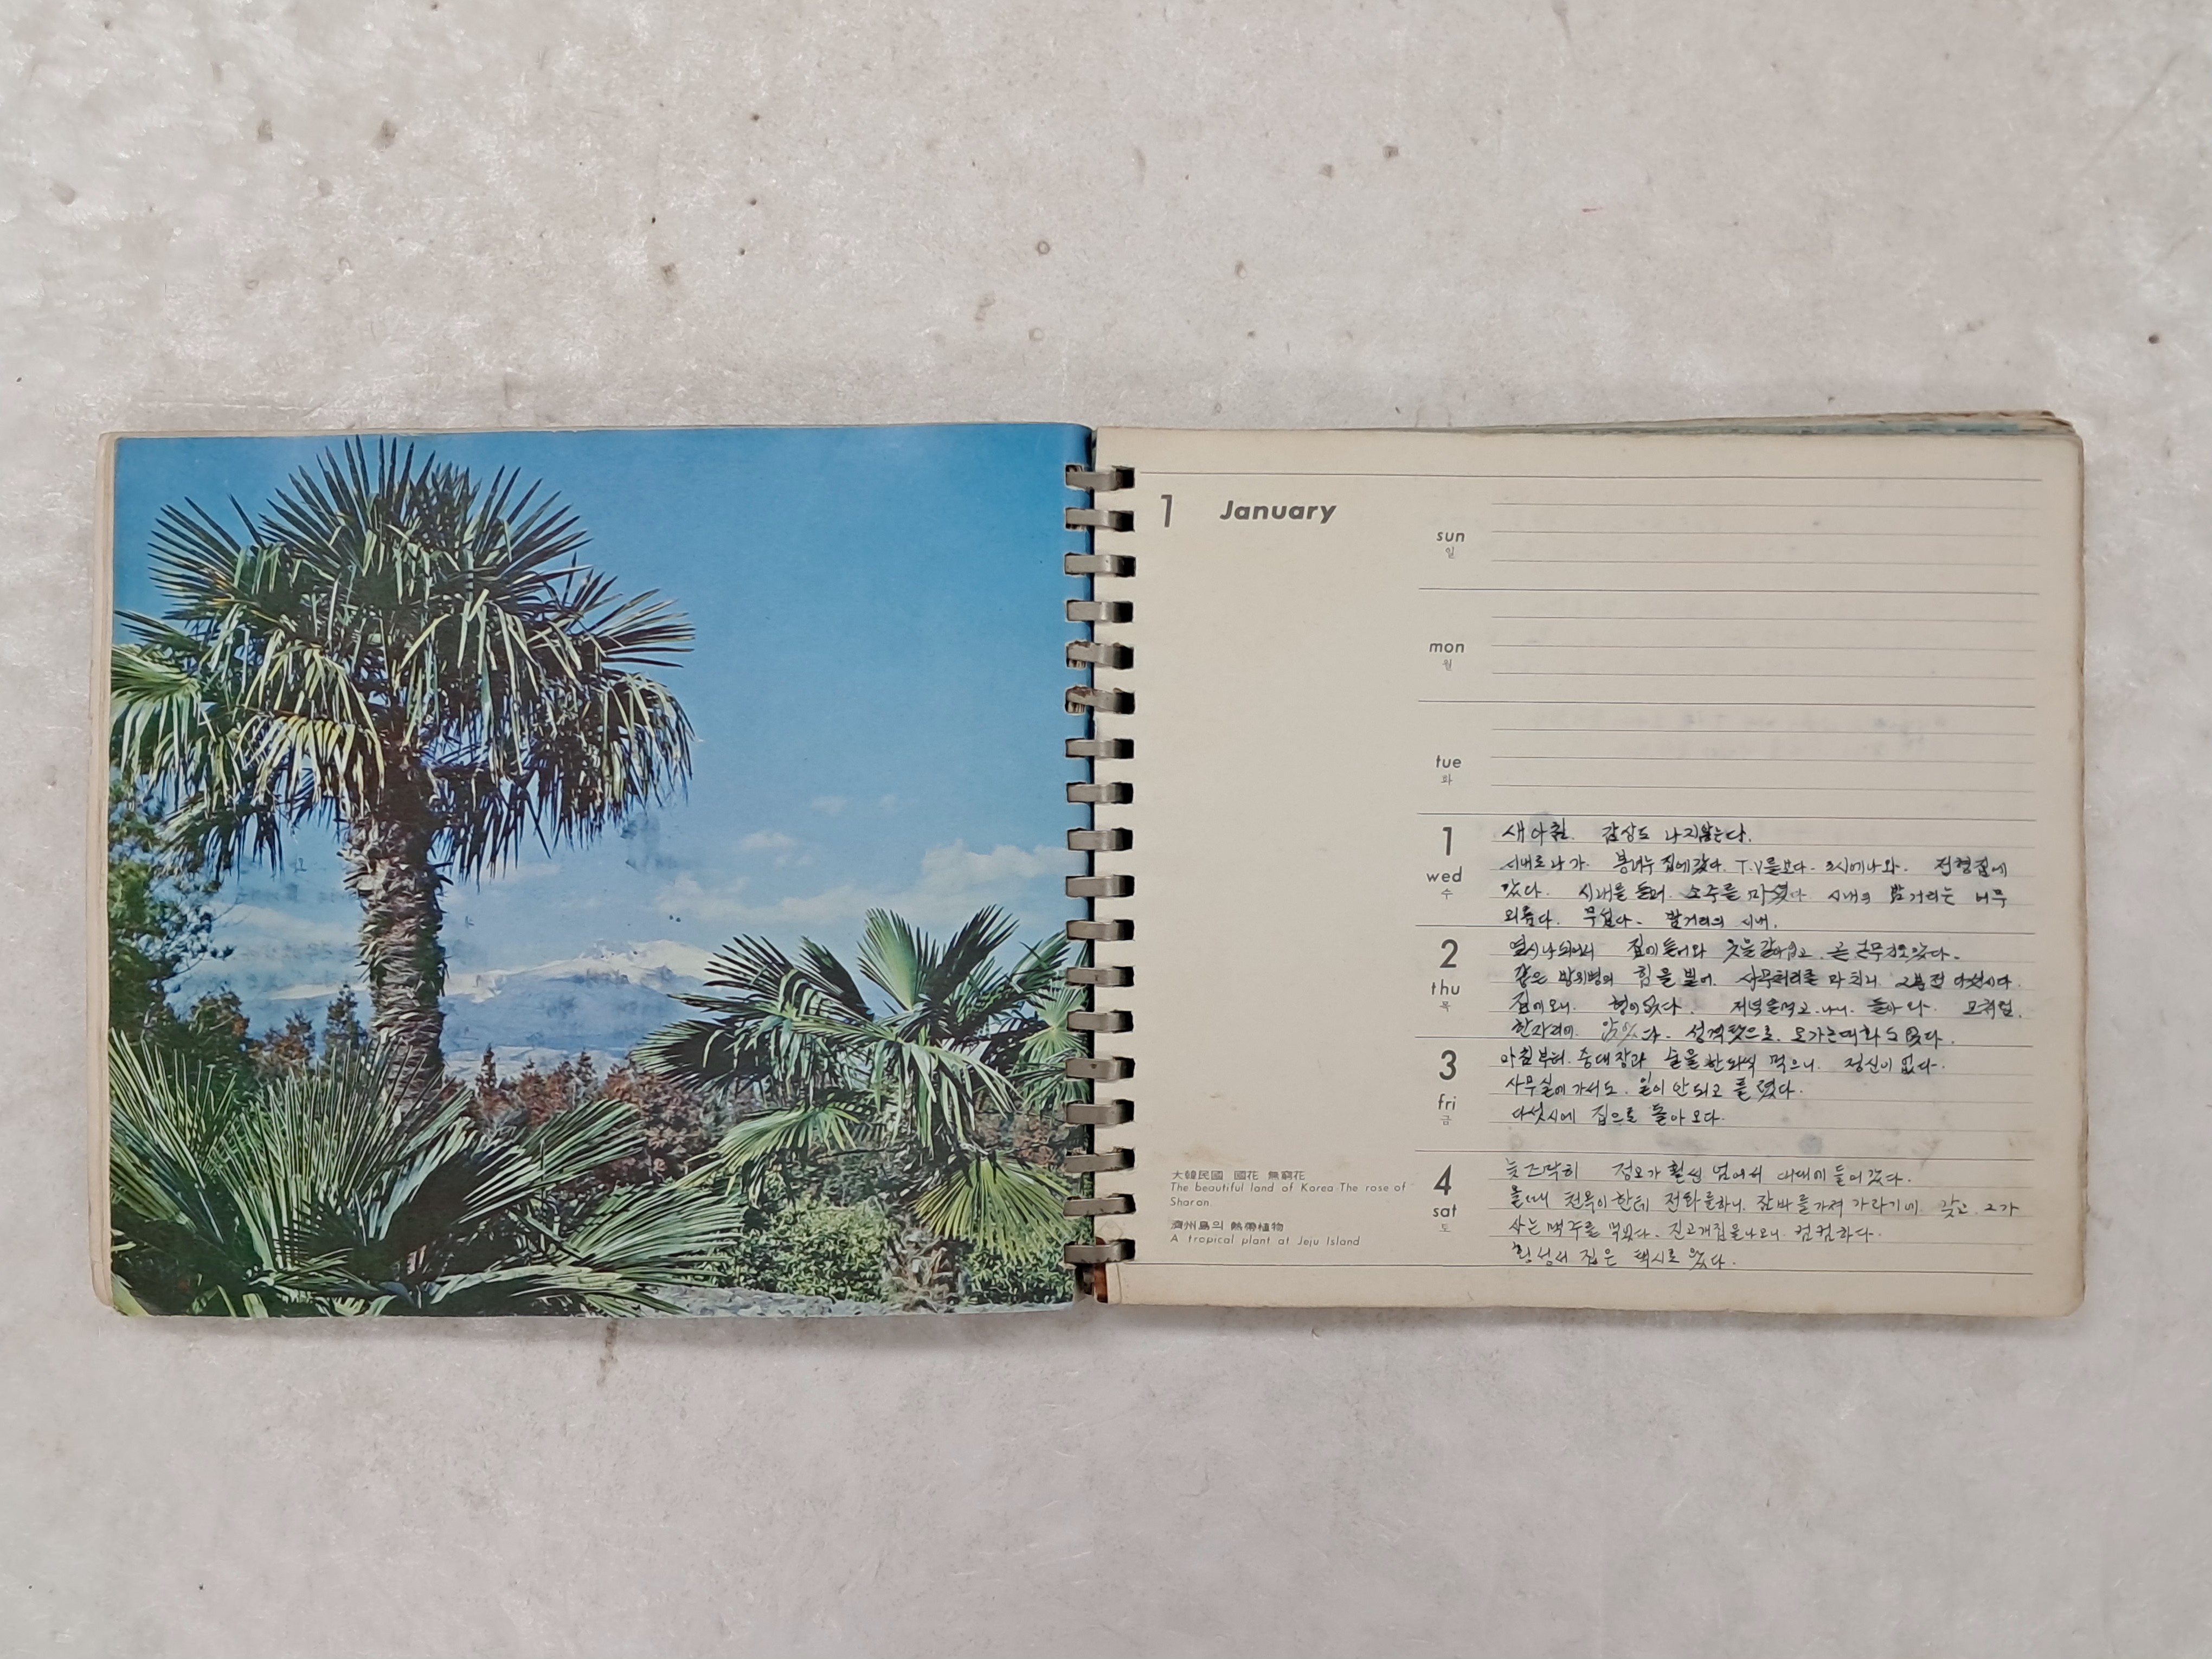 1 January
sun
일
mon
월
tue
화
1
wed
수
새아침. 감상도 나지않는다.
시내로 나가. 집에 갔다. T.V를 보다. 3시에 나와. 집에
갔다. 시내를 돌며. 소주를 마셨다 시내의 밤거리는 너무
외롭다. 무섭다. 밤거리의 시내.
2
thu
목
열시나 되어서 집에 들어와 옷을 갈아입고. 곧
같은 방위병의 힘을 빌어. 사무처리를 마치니. 2분전 다섯시다.
집에 오니. 형이 없다. 저녁을 먹고 나니. 돌아와. 모처럼.
한자리에 앉았다. 성격탓으로. 오가는 대화도 없다.
3
fri
금
아침부터. 중대장과 술을 한 되씩 먹으니. 정신이 없다.
사무실에 가서도. 일이 안되고 틀렸다.
다섯시에 집으로 돌아오다.
4
sat
토
느즈막히 정오가 훨씬 넘어서 대대에 들어갔다.
올때 한테 전화를하니. 잠바를 가져 가라기에. 갖고. 그가
사는 맥주를 먹었다. 진고개집을 나오니. 컴컴하다.
횡성서 집은 택시로 왔다.
大韓民國 國花 無窮花
The beautiful land of Korea-The rose of
Sharon
濟州島의 熱帶植物
A tropical plant at Jeju Island